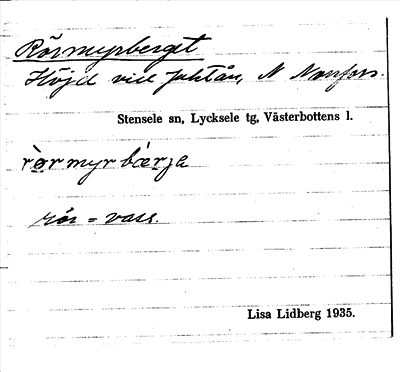 Rörmyrberget
Höjd vid Juktån, N Norrfors.
Stensele sn, Lycksele tg, Västerbottens l.
rör = vass.
Lisa Lidberg 1935.